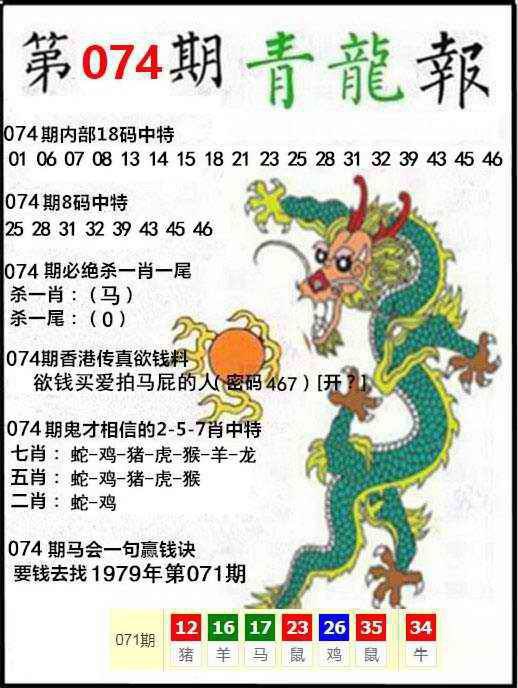 第074期青龍報
074期内部18码中特
01 06 07 08 13 14 15 18 21 23 25 28 31 32 39 43 45 46
074期8码中特
25 28 31 32 39 43 45 46
074 期必绝杀一肖一尾
杀一肖：（马）
杀一尾：（0）
074期香港传真欲钱料
欲钱买爱拍马屁的人（密码467）[开？]
074期鬼才相信的2-5-7肖中特
七肖： 蛇-鸡-猪-虎-猴-羊-龙
五肖： 蛇-鸡-猪-虎-猴
二肖： 蛇-鸡
074 期马会一句赢钱诀
要钱去找1979年第071期
071期 12 16 17 23 26 35 34
猪 羊 马 鼠 鸡 鼠 牛